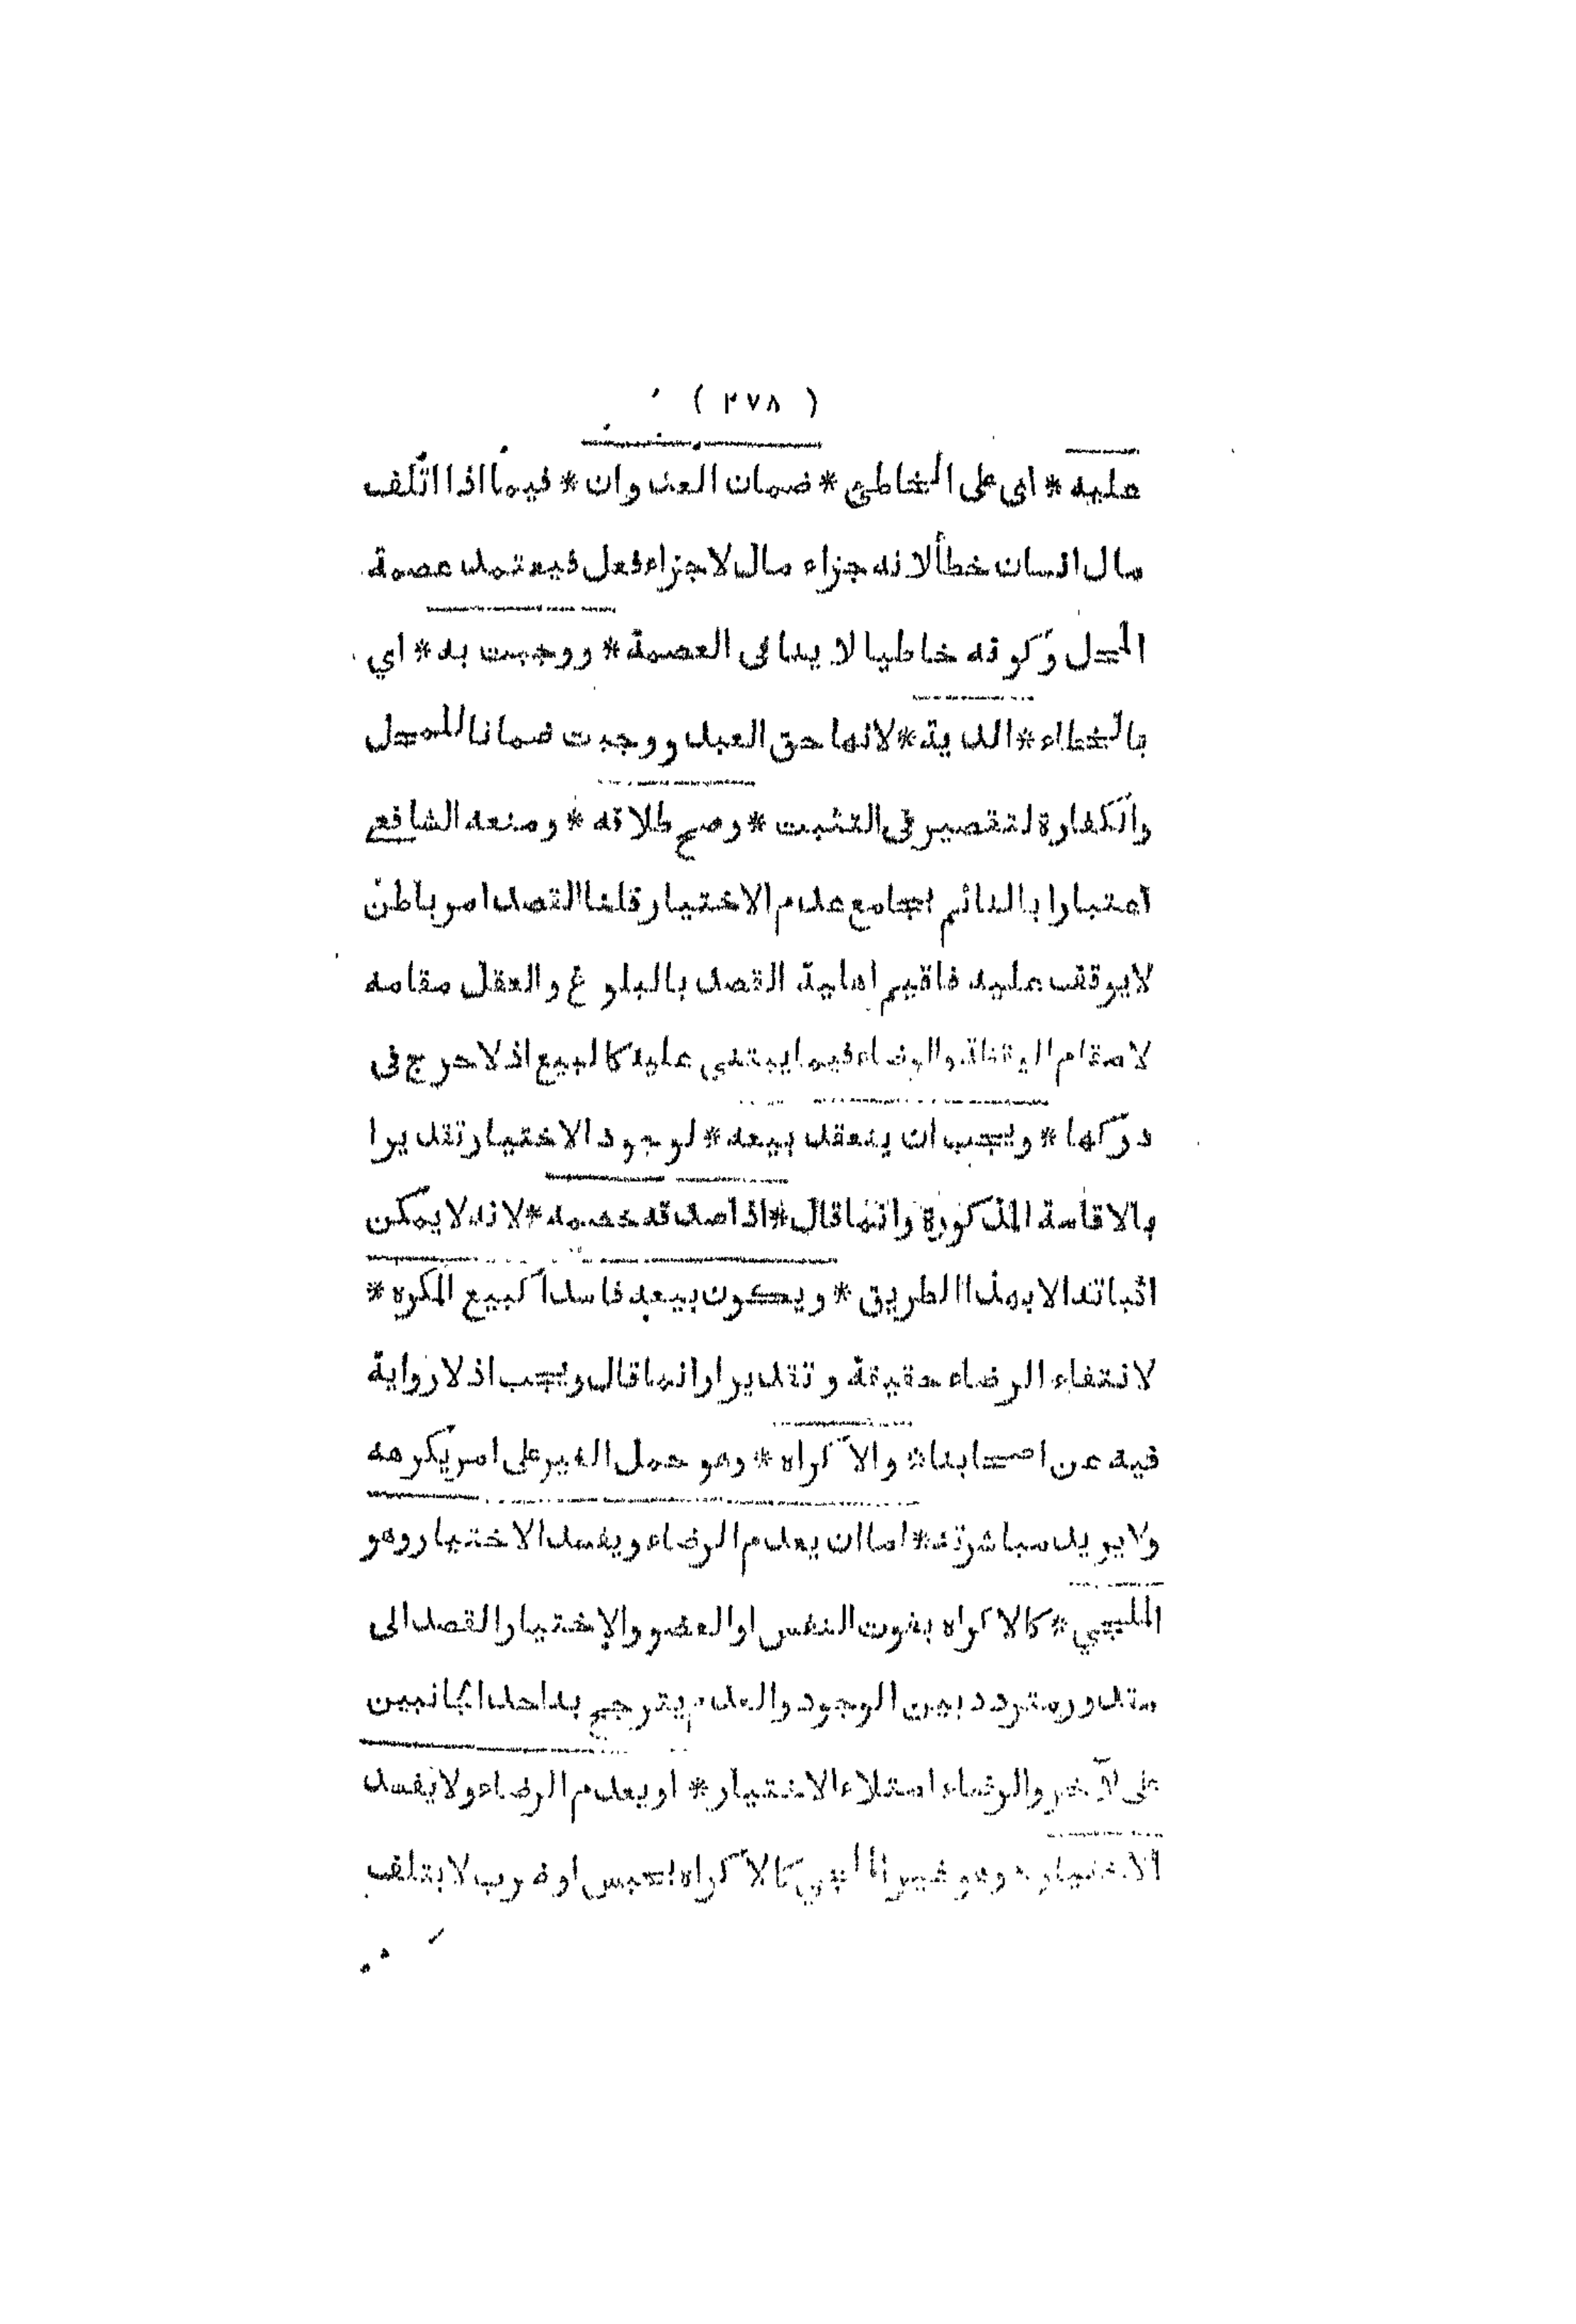 ( ٢٧٨ )
عليه * اى على الخاطئ * ضمان العدوان * فيما اذا اتلف
مال انسان خطأ لانه جزاء مال لا جزاء فعل فيعتمد عصمة
المحل وكونه خاطيا لا ينا فى العصمة * ووجبت به * اي
بالخطاء * الدية * لانها حق العبد ووجبت ضمانا للمحل
والكفارة لتقصير فى التثبت * وصح طلاقه * ومنعه الشافعي
اعتبارا بالنائم بجامع عدم الاختيار قلنا القصد امر باطن
لا يوقف عليه فاقيم اهلية القصد بالبلوغ والعقل مقامه
لا مقام اليقظة والرضاء فيما يبتني عليه كالبيع اذ لا حرج فى
دركها * ويجب ان ينعقد بيعه * لوجود الاختيار تقديرا
بالاقامة المذكورة وانما قال * اذا صدقه خصمه * لانه لا يمكن
اثباته الا بهذا الطريق * ويكون بيعه فاسدا كبيع المكره *
لانتفاء الرضاء حقيقة وتقديرا وانما قال ويجب اذ لا رواية
فيه عن اصحابنا * والاكراه * وهو حمل الغير على امر يكرهه
ولا يريد مباشرته * اما ان يعدم الرضاء ويفسد الاختيار وهو
الملجي * كالاكراه بفوت النفس او العضو والاختيار القصد الى
مقدور متردد بين الوجود والعدم بترجيح بداحد الجانبين
على الآخر والرضاء امتلاء الاختيار * او يعدم الرضاء ولا يفسد
الاختيار * وهو غير الملجي كالاكراه بحبس او ضرب لا يتلف